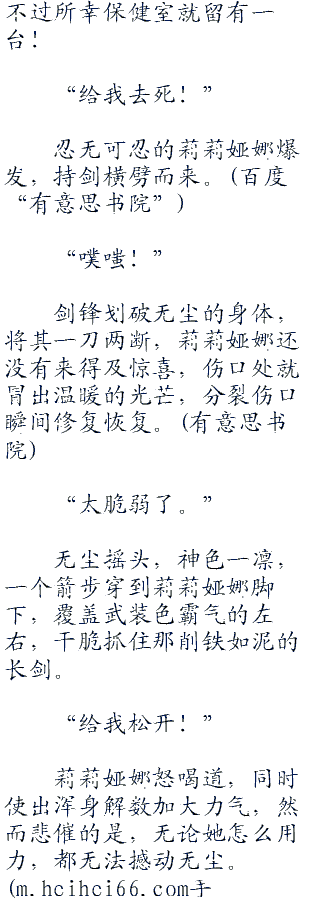 不过所幸保健室就留有一
台！
“给我去死！”
忍无可忍的莉莉娅娜爆
发，持剑横劈而来。(百度
“有意思书院”)
“噗嗤！”
剑锋划破无尘的身体，
将其一刀两断，莉莉娅娜还
没有来得及惊喜，伤口处就
冒出温暖的光芒，分裂伤口
瞬间修复恢复。(有意思书
院)
“太脆弱了。”
无尘摇头，神色一凛，
一个箭步穿到莉莉娅娜脚
下，覆盖武装色霸气的左
右，干脆抓住那削铁如泥的
长剑。
“给我松开！”
莉莉娅娜怒喝道，同时
使出浑身解数加大力气，然
而悲催的是，无论她怎么用
力，都无法撼动无尘。
(m.hcihci66.com于